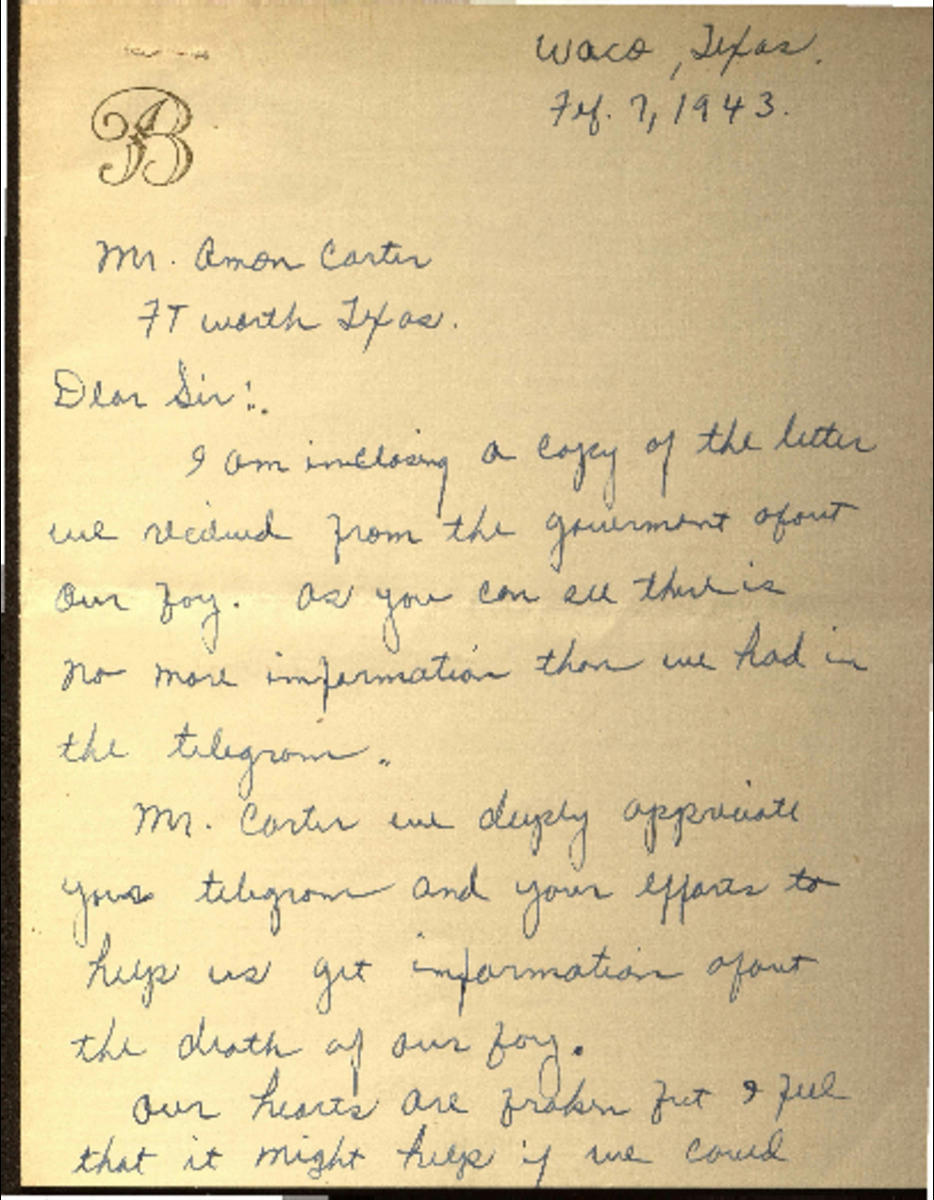 Waco, Texas.
Feb. 7, 1943.
B
Mr. Amon Carter
Ft Worth Texas.
Dear Sir:
I am inclosing a copy of the letter
we recieved from the goverment about
our boy. As you can see there is
no more information than we had in
the telegram.
Mr. Carter we deeply appreciate
your telegram and your efforts to
help us get information about
the death of our boy.
Our hearts are broken but I feel
that it might help if we could